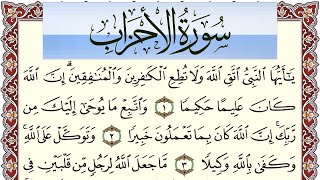 سُورَةُ الأَحْزَابِ
يَٰٓأَيُّهَا ٱلنَّبِيُّ ٱتَّقِ ٱللَّهَ وَلَا تُطِعِ ٱلْكَٰفِرِينَ وَٱلْمُنَٰفِقِينَۗ إِنَّ ٱللَّهَ
كَانَ عَلِيمًا حَكِيمًا ١ وَٱتَّبِعْ مَا يُوحَىٰٓ إِلَيْكَ مِن
رَّبِّكَۚ إِنَّ ٱللَّهَ كَانَ بِمَا تَعْمَلُونَ خَبِيرًا ٢ وَتَوَكَّلْ عَلَى ٱللَّهِۚ
وَكَفَىٰ بِٱللَّهِ وَكِيلًا ٣ مَّا جَعَلَ ٱللَّهُ لِرَجُلٍ مِّن قَلْبَيْنِ فِي